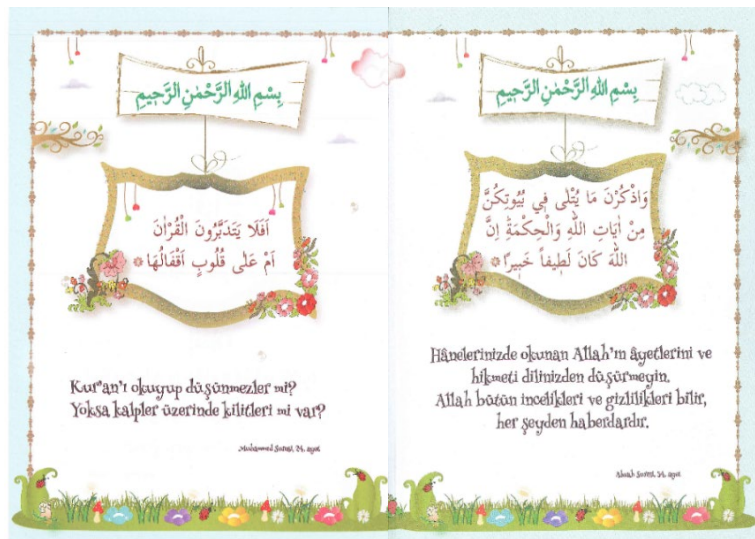 بِسْمِ اللهِ الرَّحْمٰنِ الرَّح۪يمِ
اَفَلَا يَتَدَبَّرُونَ الْقُرْاٰنَ
اَمْ عَلٰى قُلُوبٍ اَقْفَالُهَا ۞
Kur'an'ı okuyup düşünmezler mi?
Yoksa kalpler üzerinde kilitleri mi var?
Muhammed Suresi, 24. ayet
بِسْمِ اللهِ الرَّحْمٰنِ الرَّح۪يمِ
وَاذْكُرْنَ مَا يُتْلٰى ف۪ي بُيُوتِكُنَّ
مِنْ اٰيَاتِ اللّٰهِ وَالْحِكْمَةِۜ اِنَّ
اللّٰهَ كَانَ لَط۪يفاً خَب۪يراً ۞
Hânelerinizde okunan Allah'ın âyetlerini ve
hikmeti dilinizden düşürmeyin.
Allah bütün incelikleri ve gizlilikleri bilir,
her şeyden haberdardır.
Ahzab Suresi, 34. ayet